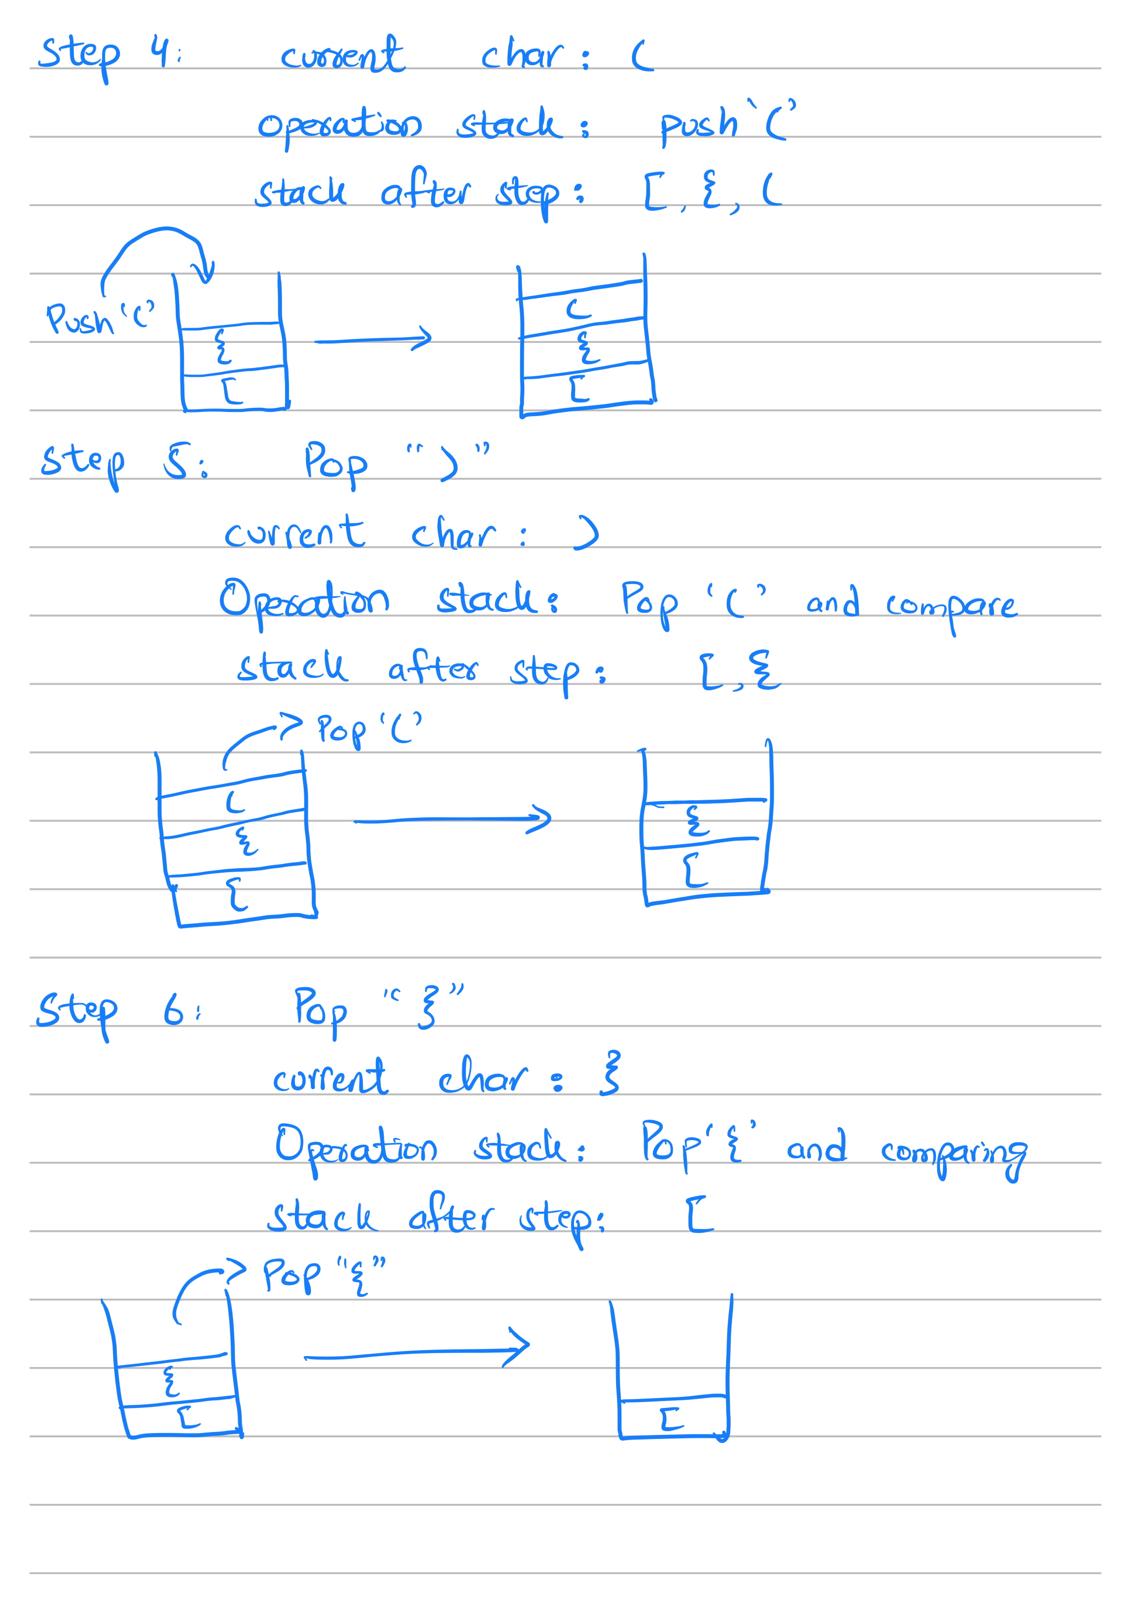 Step 4: current char: (
operation stack: push '('
stack after step: [, {, (
Push '('
(
{
{
[
[
Step 5: Pop ")"
current char: )
Operation stack: Pop '(' and compare
stack after step: [, {
Pop '('
(
{
{
[
[
Step 6: Pop "}"
current char: }
Operation stack: Pop '{' and comparing
stack after step: [
Pop "{"
{
[
[